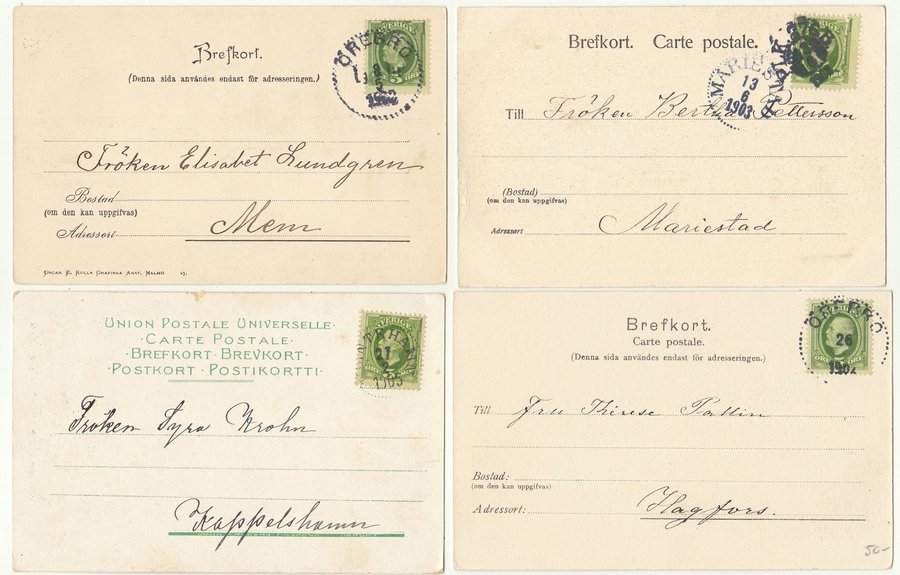 Brefkort.
(Denna sida användes endast för adresseringen.)
SVERIGE
ÖREBRO
Fröken Elisabet Lundgren
Bostad
(om den kan uppgifvas)
Mem
Adressort
OSCAR E. KULLS GRAFISKA ANST. MALMÖ
Brefkort. Carte postale.
MARIES
13
6
1903
Till Fröken Bertha Pettersson
(Bostad)
(om den kan uppgifvas)
Adressort Mariestad
UNION POSTALE UNIVERSELLE
· CARTE POSTALE ·
· BREFKORT · BREVKORT ·
POSTKORT · POSTIKORTTI ·
SVERIGE
1903
Fröken Syra Krohn
Kappelshamn
Brefkort.
Carte postale.
(Denna sida användes endast för adresseringen.)
ÖREBRO
26
Till Fru Thérese Pallin
Bostad:
(om den kan uppgifvas)
Adressort: Hagfors.
50-